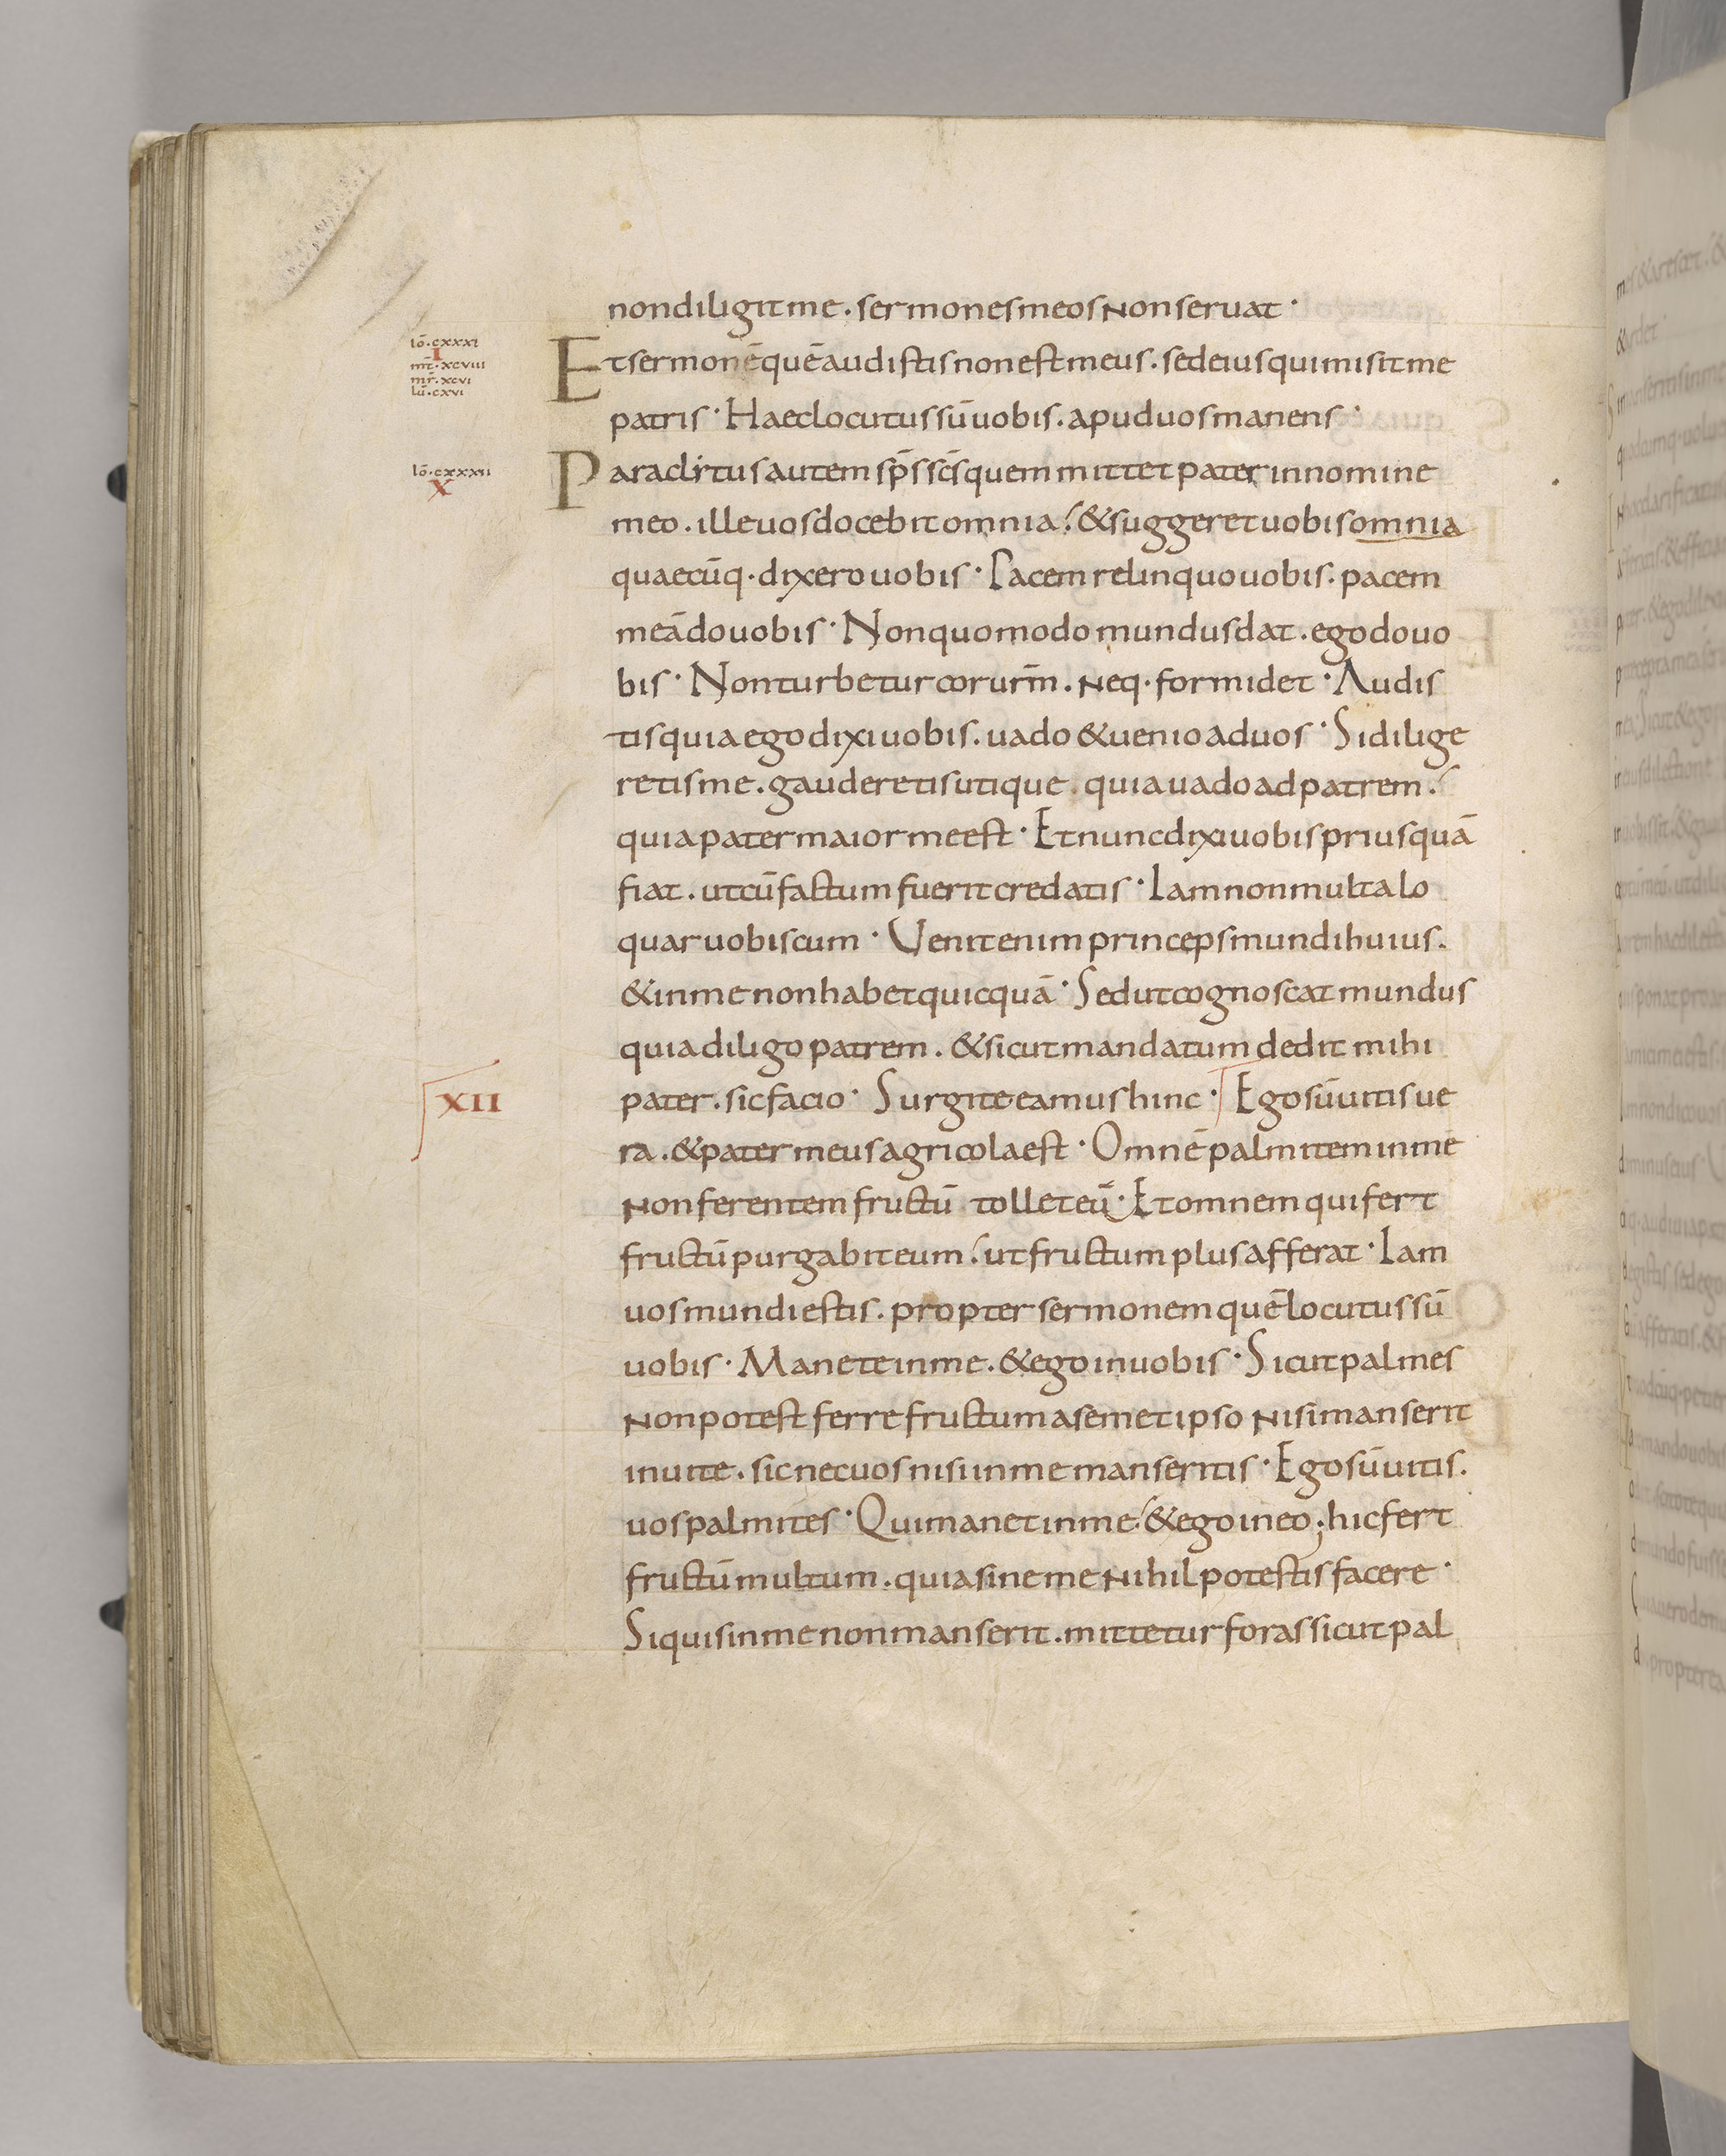 non diligit me . sermones meos non seruat ·
iō · cxxxi
I
mt̄ · xcviii
mr̄ · xcvi
lū · cxvi
Et sermonē quē audistis non est meus . sed eius qui misit me
patris · Haec locutus sū uobis . apud uos manens ·
iō · cxxxii
X
Paraclitus autem sp̄s sc̄s quem mittet pater in nomine
meo . ille uos docebit omnia . & suggeret uobis omnia
quaecūq · dixero uobis · Pacem relinquo uobis . pacem
meā do uobis · Non quomodo mundus dat . ego do uo
bis · Non turbetur cor urm̄ . neq · formidet · Audis
tis quia ego dixi uobis . uado & uenio ad uos · Si dilige
retis me . gauderetis utique . quia uado ad patrem .
quia pater maior me est · Et nunc dixi uobis priusquā
fiat . ut cū factum fuerit credatis · Iam non multa lo
quar uobiscum · Uenit enim princeps mundi huius .
& in me non habet quicquā · Sed ut cognoscat mundus
quia diligo patrem . & sicut mandatum dedit mihi
XII
pater . sic facio · Surgite eamus hinc · Ego sū uitis ue
ra . & pater meus agricola est · Omnē palmitem in me
non ferentem fructū tollet eū · Et omnem qui fert
fructū purgabit eum . ut fructum plus afferat · Iam
uos mundi estis . propter sermonem quē locutus sū
uobis · Manete in me . & ego in uobis · Sicut palmes
non potest ferre fructum a semetipso nisi manserit
in uite . sic nec uos nisi in me manseritis · Ego sū uitis .
uos palmites · Qui manet in me & ego in eo ; hic fert
fructū multum . quia sine me nihil potestis facere ·
Si quis in me non manserit . mittetur foras sicut pal